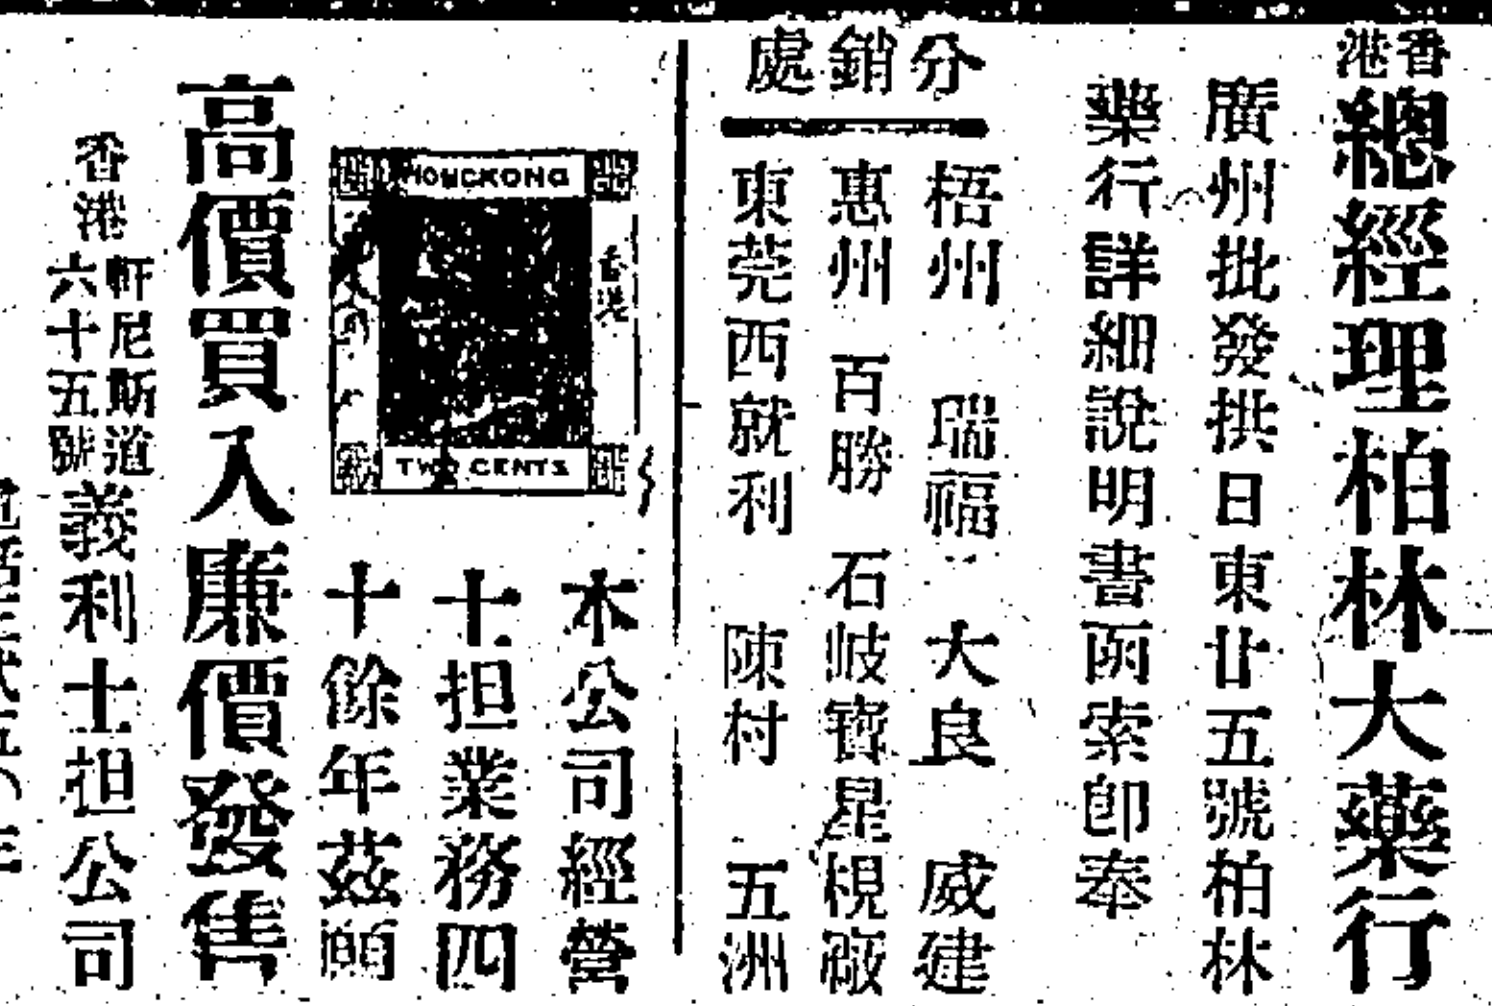 香港
總經理柏林大藥行
廣州批發拱日東廿五號柏林
藥行詳細說明書函索即奉
分銷處
梧州 瑞福 大良 威建
惠州 百勝 石岐寶星梘廠
東莞西就利 陳村 五洲
HONGKONG
香港
TWO CENTS
本公司經營
士担業務四
十餘年茲願
高價買入廉價發售
香港
軒尼斯道
六十五號
義利士担公司